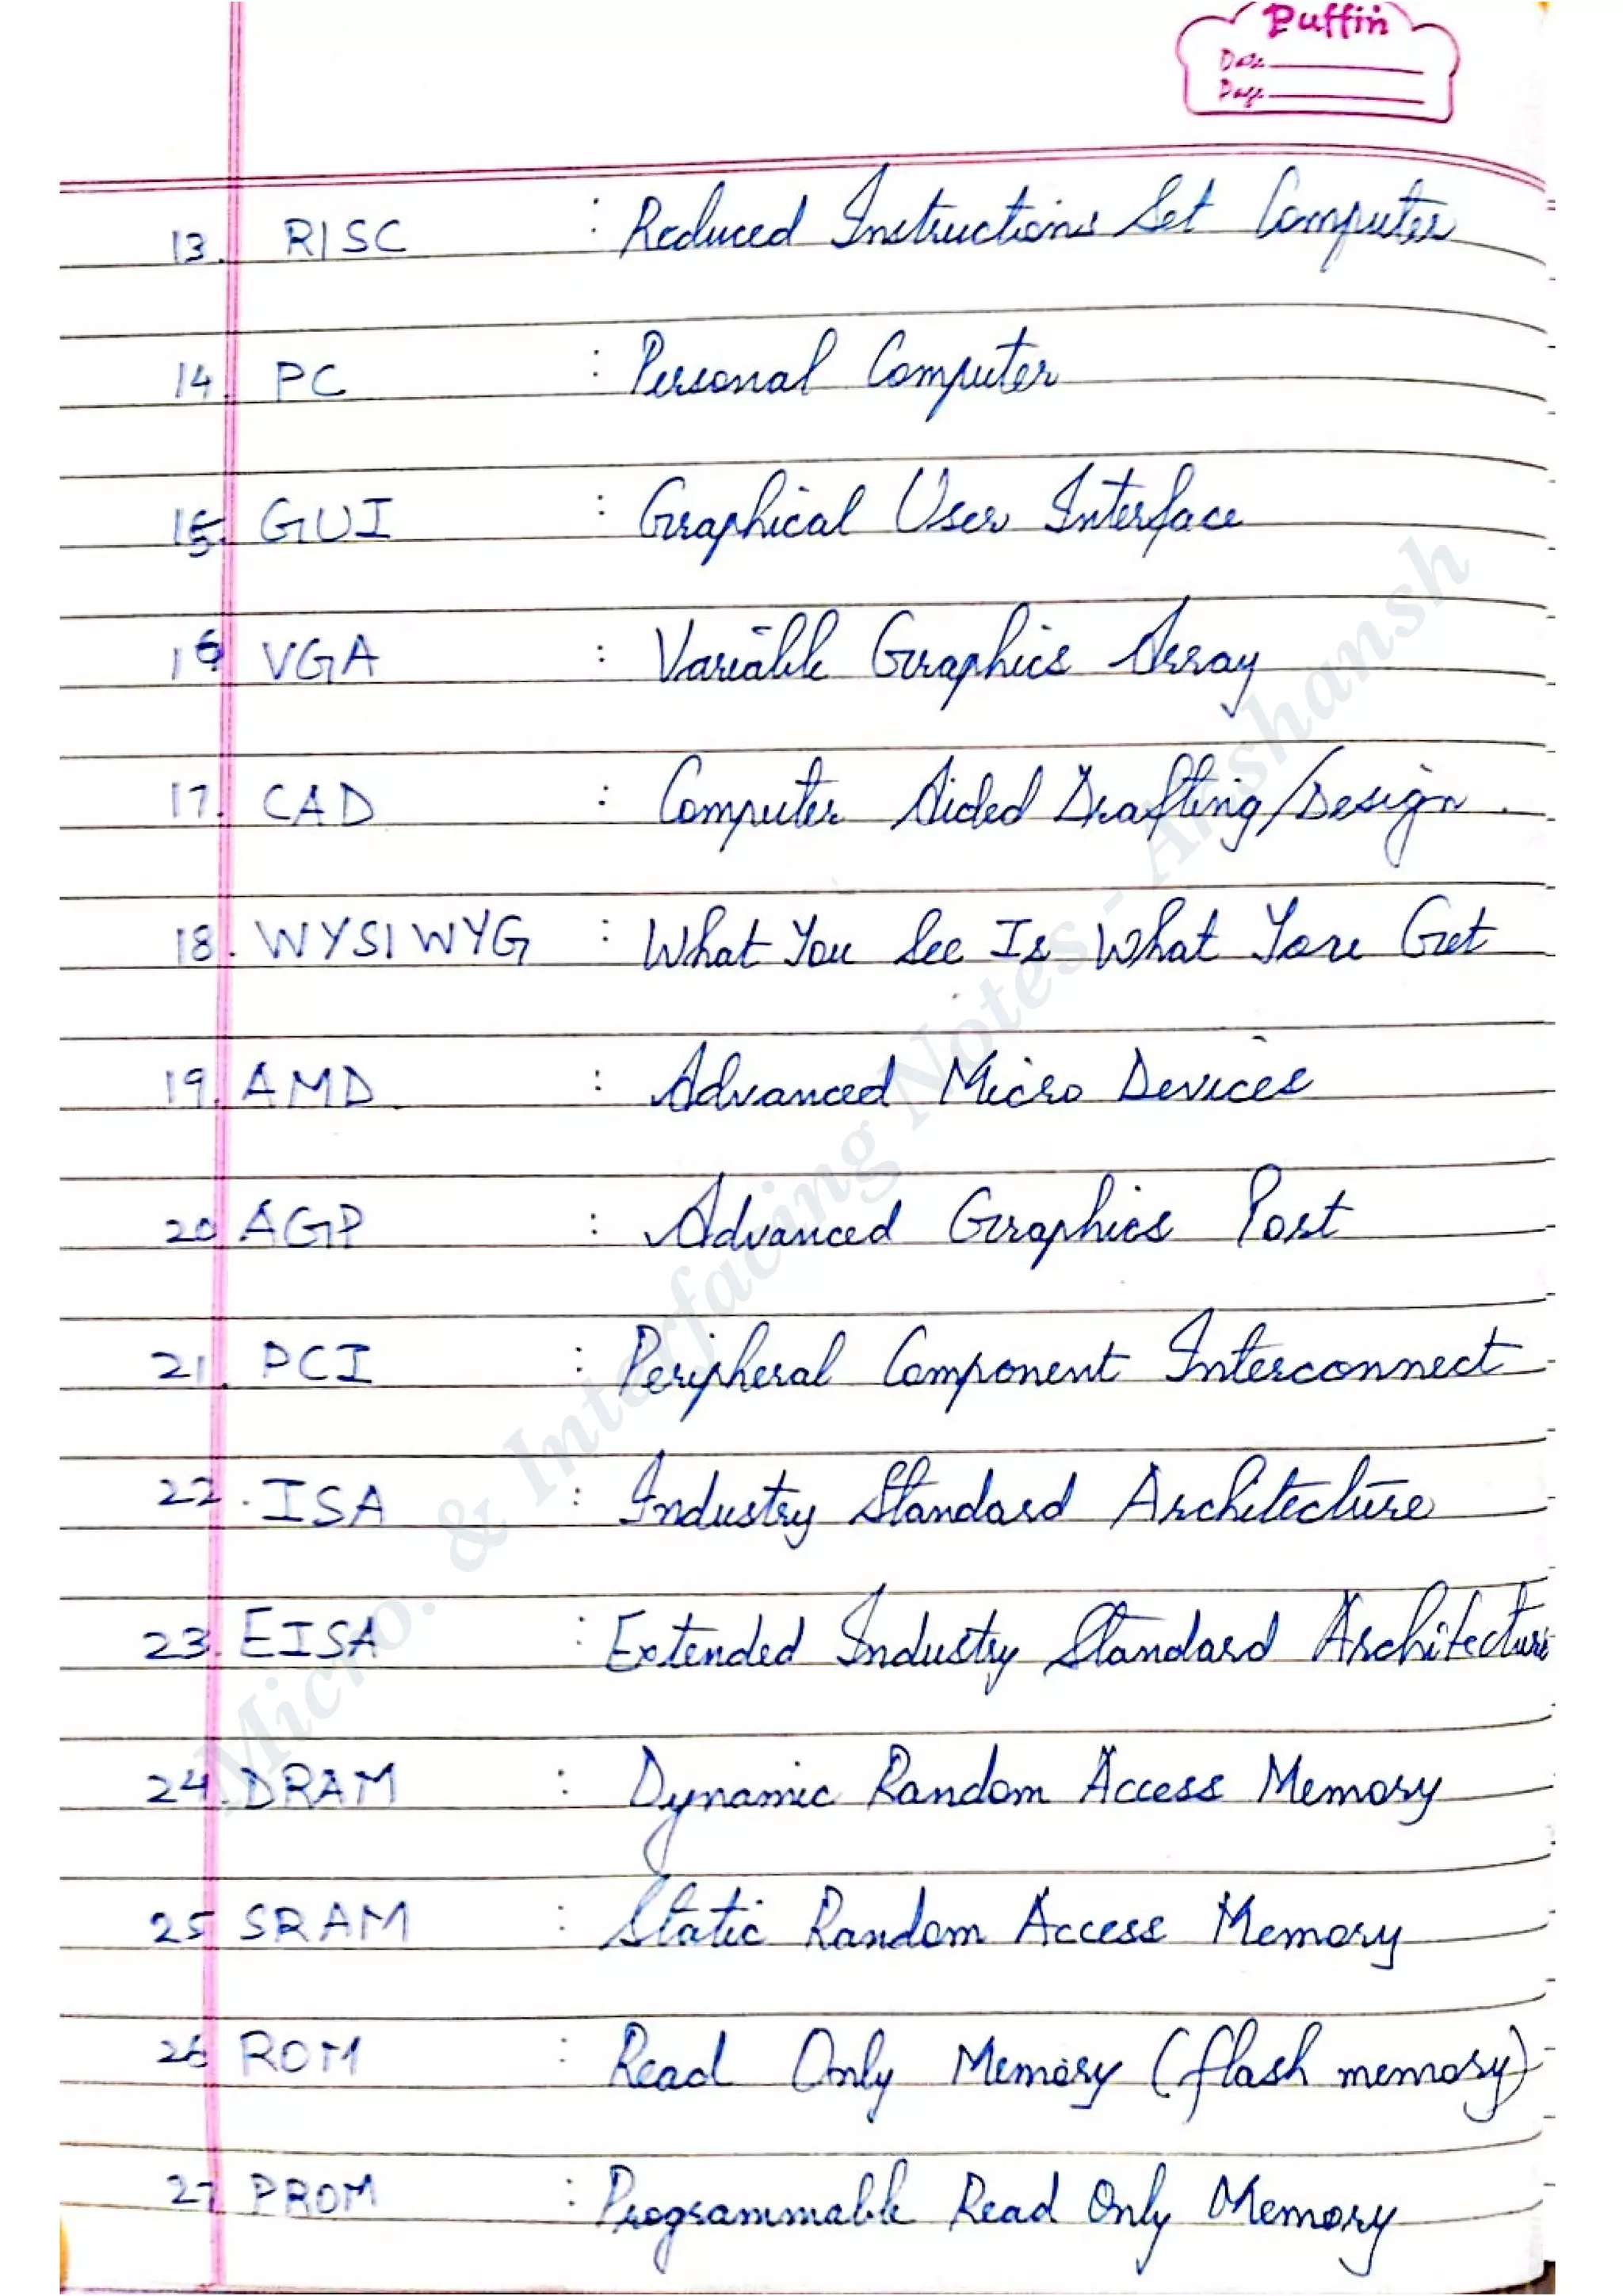 Puffin
Date
Page
13. RISC : Reduced Instructions Set Computer
14. PC : Personal Computer
15. GUI : Graphical User Interface
16 VGA : Variable Graphics Array
17. CAD : Computer Aided Drafting/Design.
18. WYSIWYG : What You See Is What You Get
19. AMD. : Advanced Micro Devices
20 AGP : Advanced Graphics Port
21. PCI : Peripheral Component Interconnect
22. ISA : Industry Standard Architecture
23. EISA : Extended Industry Standard Architecture
24. DRAM : Dynamic Random Access Memory
25 SRAM : Static Random Access Memory
26 ROM : Read Only Memory (flash memory)
27 PROM : Programmable Read Only Memory
Micro. & Interfacing Notes - Anshansh